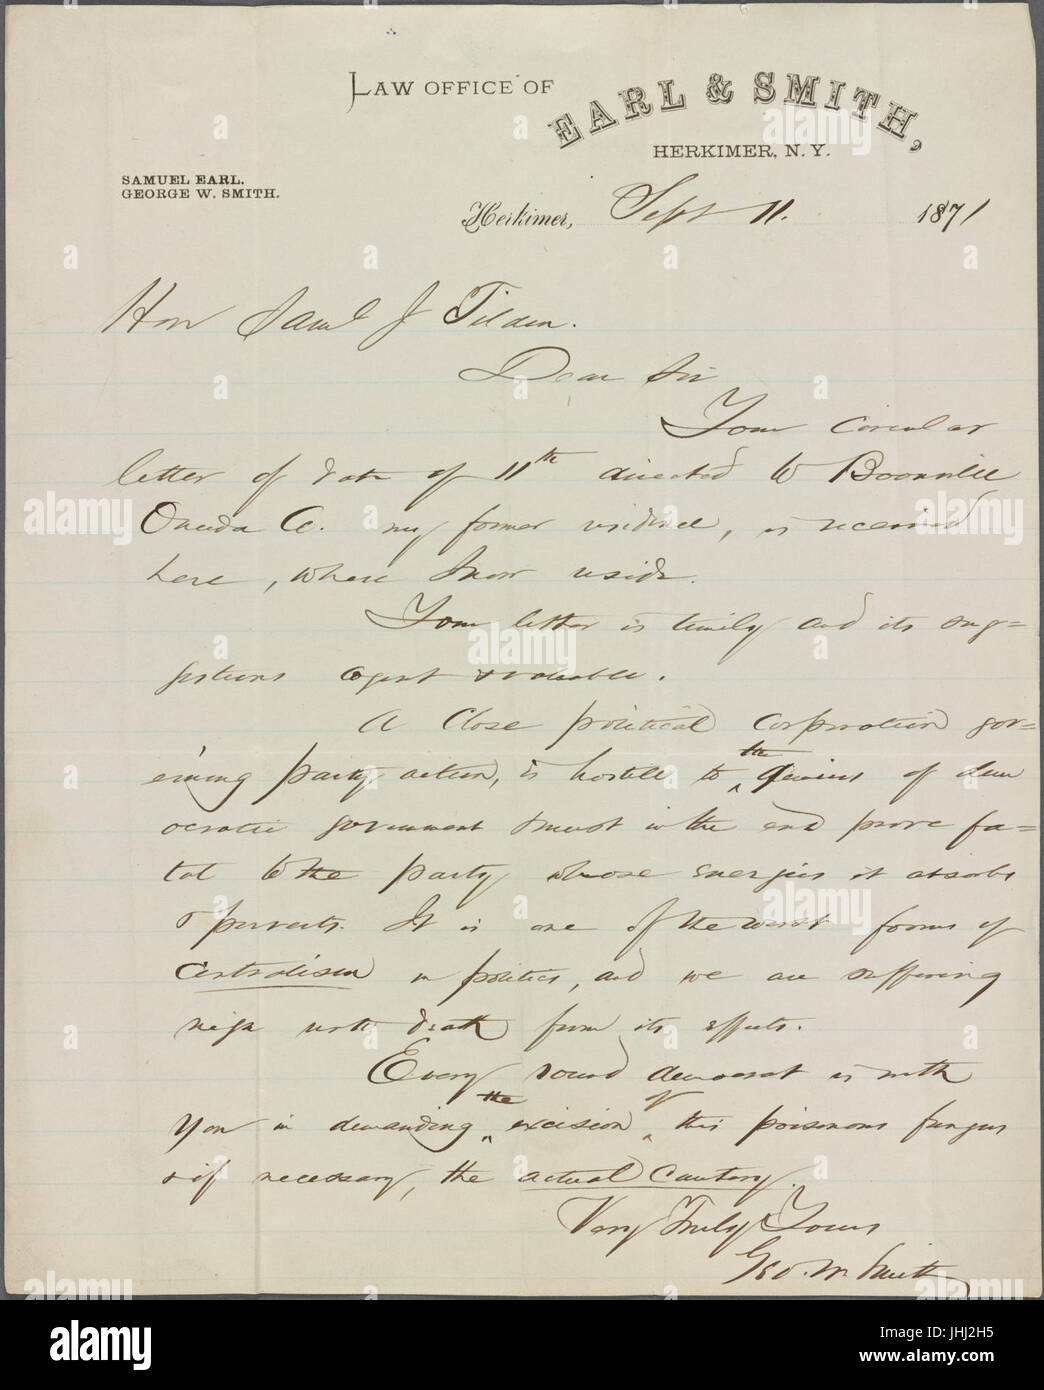 LAW OFFICE OF
EARL & SMITH,
HERKIMER, N. Y.
SAMUEL EARL.
GEORGE W. SMITH.
Herkimer, Sept 11. 1871
Hon Saml J Tilden.
Dear Sir
Your circular
letter of date of 11th directed to Boonville
Oneida Co. my former residence, is received
here, where I now reside.
Your letter is timely and its sug=
gestions cogent & valuable.
A close political corporation gov=
erning party action, is hostile to the genius of dem
ocratic government & must in the end prove fa=
tal to the party whose energies it absorbs
& perverts. It is one of the worst forms of
Centralism in politics, and we are suffering
nigh unto death from its effects.
Every sound democrat is with
you in demanding the excision of this poisonous fungus
& if necessary, the actual cautery.
Very Truly Yours
Geo. W. Smith
alamy
Image ID: JHJ2H5
www.alamy.com